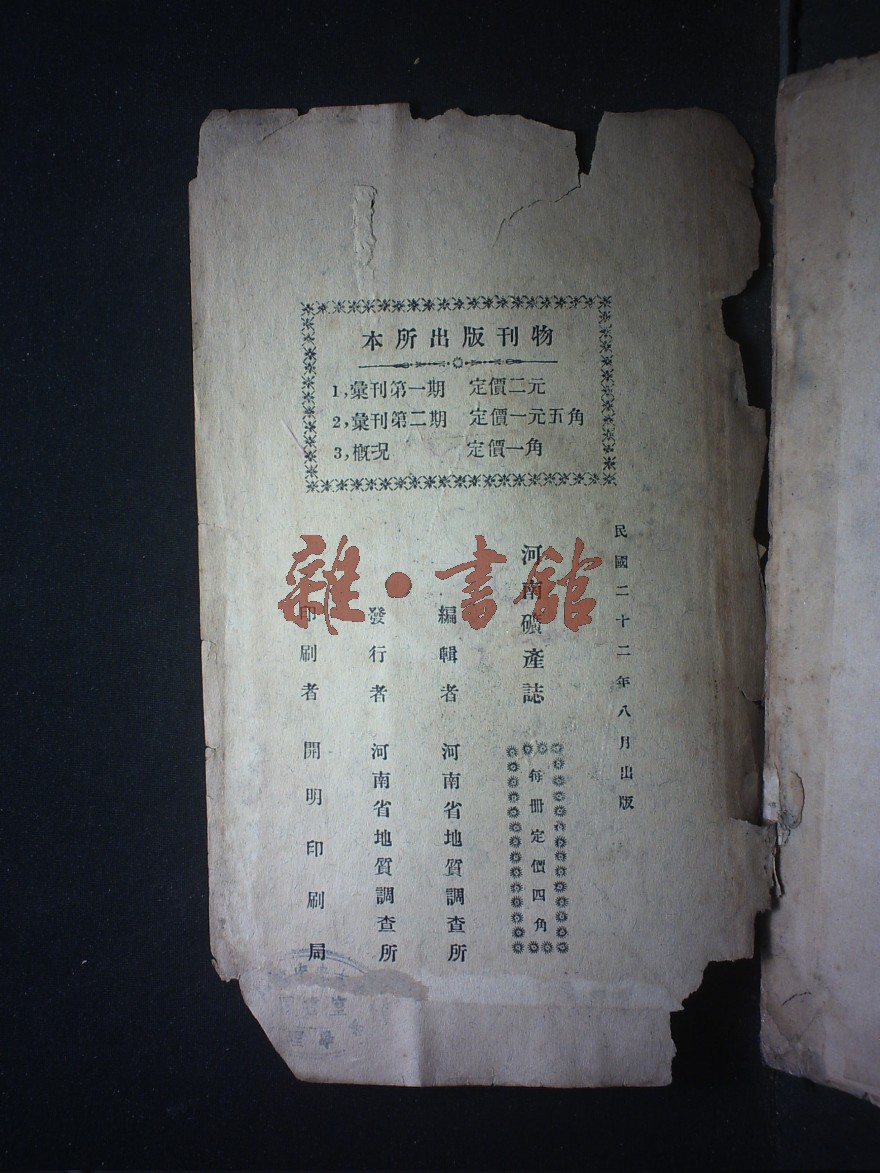 本所出版刊物
1,彙刊第一期 定價二元
2,彙刊第二期 定價一元五角
3,概况 定價一角
民國二十二年八月出版
河南礦產誌
每冊定價四角
編輯者 河南省地質調查所
發行者 河南省地質調查所
印刷者 開明印刷局
雜·書館